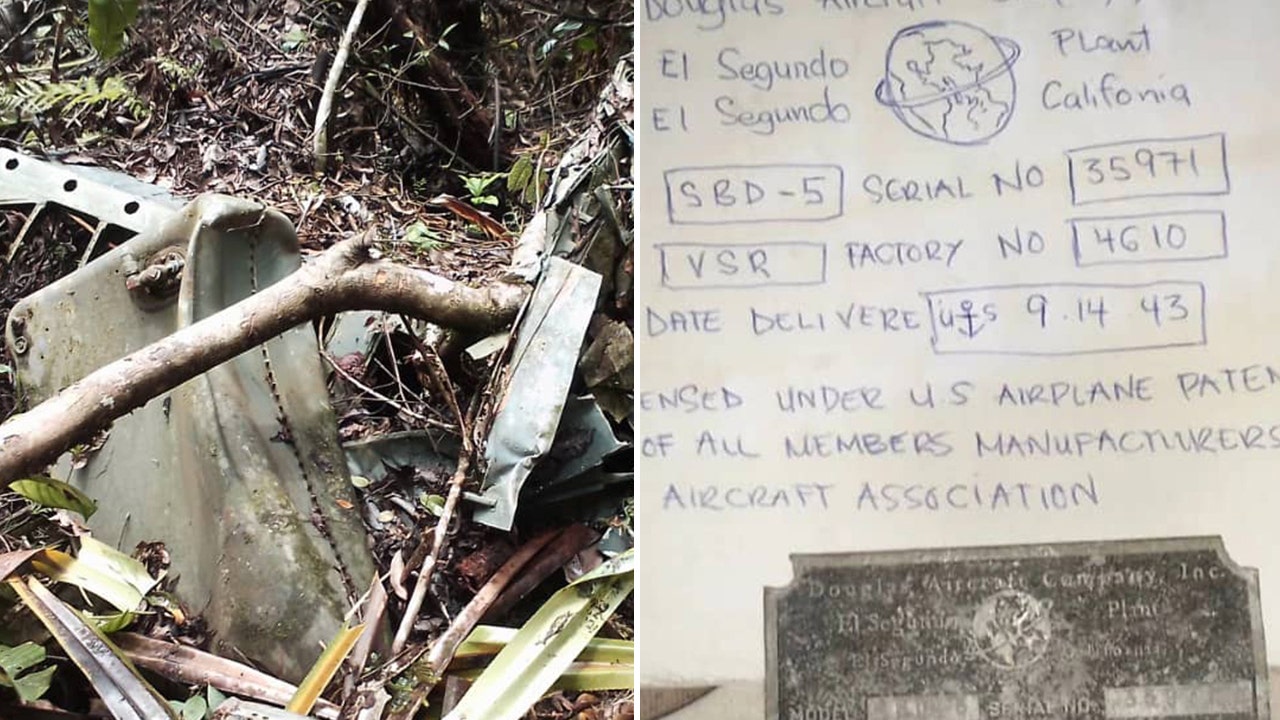 Douglas Aircraft
El Segundo Plant
El Segundo Califonia
SBD-5 SERIAL NO 35971
VSR FACTORY NO 4610
DATE DELIVERE 9.14 43
ENSED UNDER U.S AIRPLANE PATEN
OF ALL MEMBERS MANUFACTURERS
AIRCRAFT ASSOCIATION
Douglas Aircraft Company, Inc.
El Segundo Plant
El Segundo California
MODEL SERIAL NO.